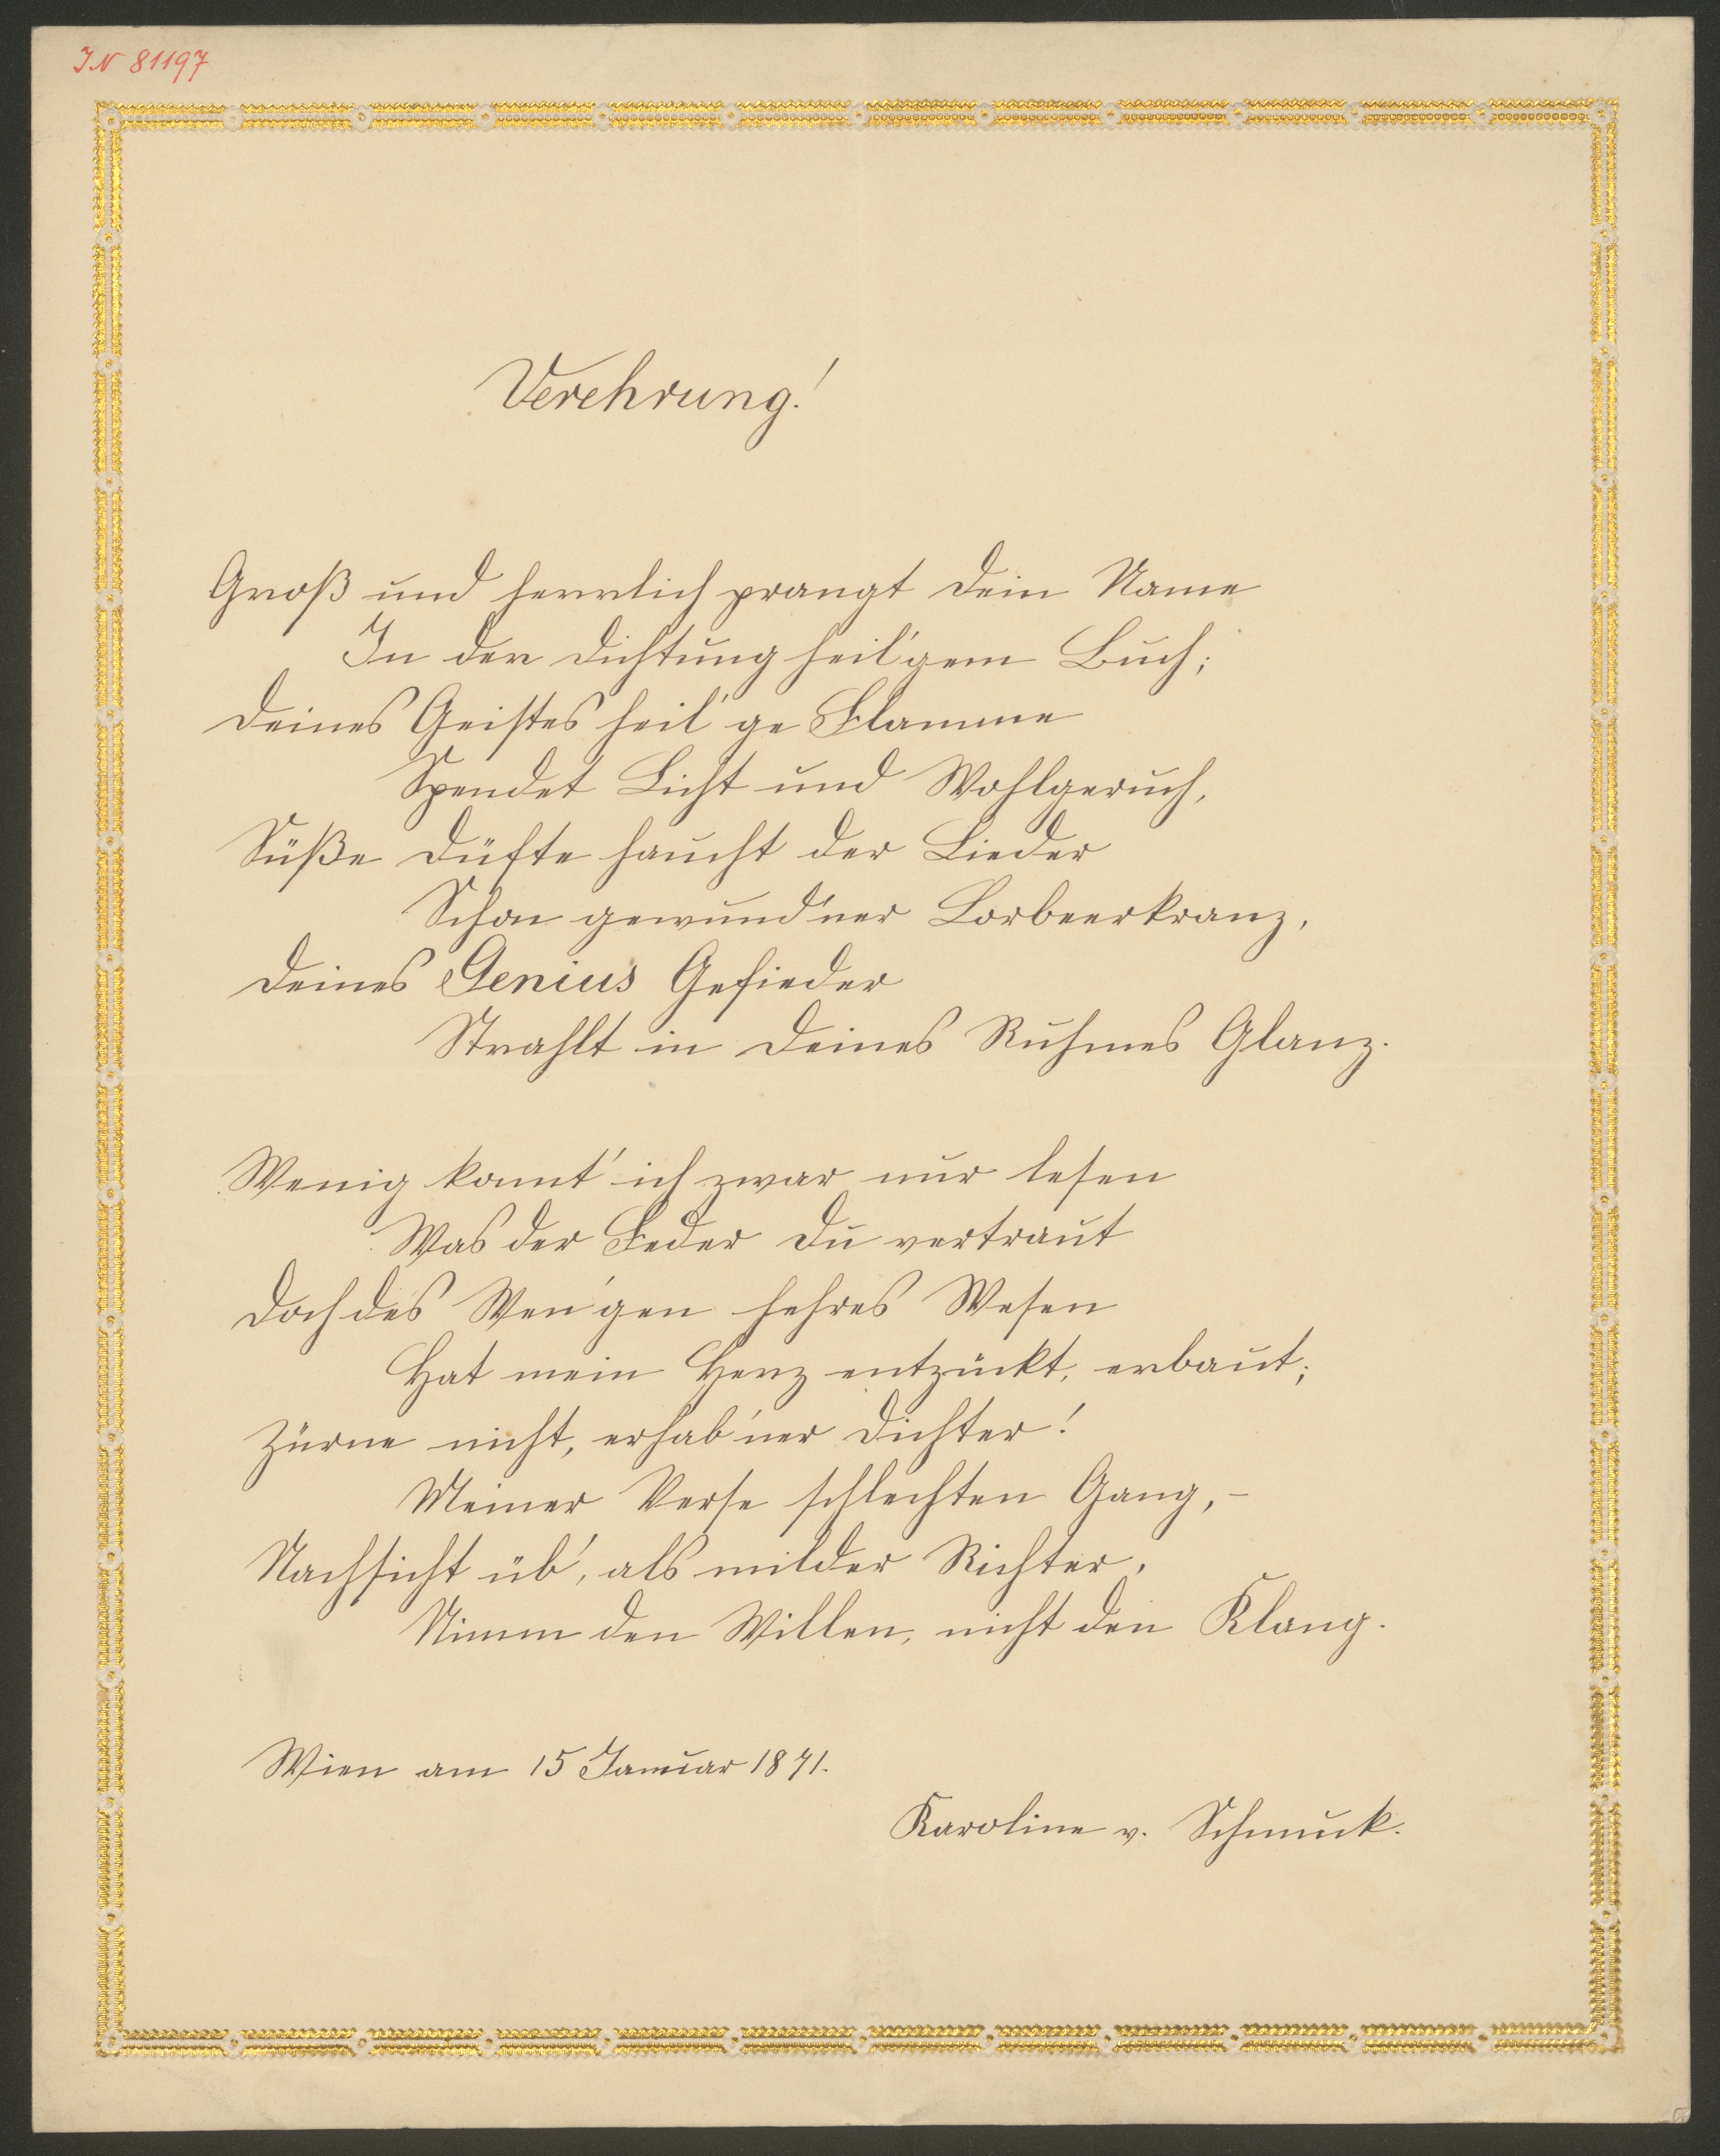 IN 81197
Verehrung!
Groß und herrlich prangt Dein Name
In der Dichtung heil'gem Buch;
Deines Geistes heil'ge Flamme
Spendet Licht und Wohlgeruch,
Süße Düfte haucht der Lieder
Schon gewund'ner Lorbeerkranz,
Deines Genius Gefieder
Strahlt in Deines Ruhmes Glanz.
Wenig konnt' ich zwar nur lesen
Was der Feder Du vertraut
Doch des Wen'gen hehres Wesen
Hat mein Herz entzückt, erbaut;
Zürne nicht, erhab'ner Dichter!
Meiner Verse schlechten Gang,-
Nachsicht üb', als milder Richter,
Nimm den Willen, nicht den Klang.
Wien am 15 Januar 1871.
Karoline v. Schmuck.